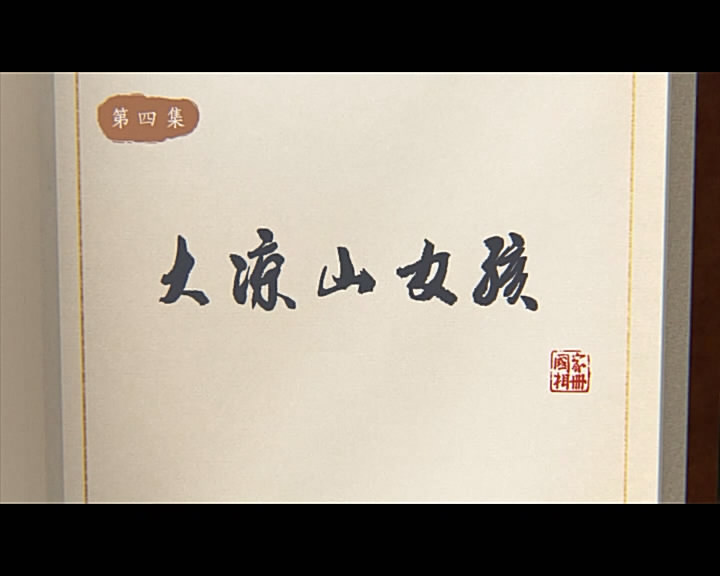 第四集
大凉山女孩
國家相冊